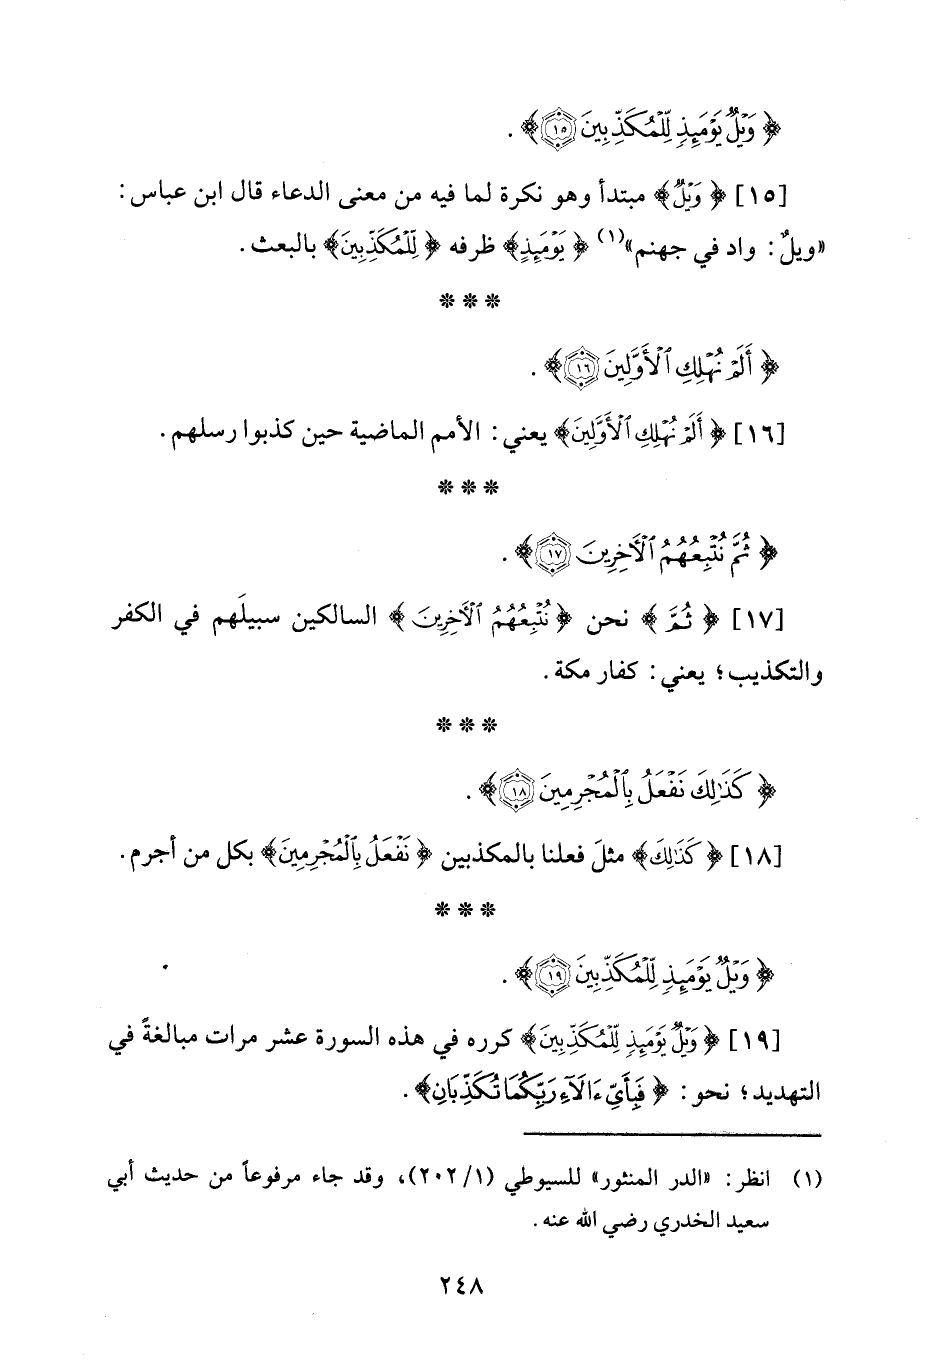 ﴿ وَيْلٌ يَوْمَئِذٍ لِّلْمُكَذِّبِينَ ١٥﴾ .
[١٥] ﴿ وَيْلٌ﴾ مبتدأ وهو نكرة لما فيه من معنى الدعاء قال ابن عباس :
«ويلٌ : واد في جهنم»(١) ﴿ يَوْمَئِذٍ﴾ ظرفه ﴿ لِّلْمُكَذِّبِينَ﴾ بالبعث .
* * *
﴿ أَلَمْ نُهْلِكِ ٱلْأَوَّلِينَ ١٦﴾ .
[١٦] ﴿ أَلَمْ نُهْلِكِ ٱلْأَوَّلِينَ﴾ يعني : الأمم الماضية حين كذبوا رسلهم .
* * *
﴿ ثُمَّ نُتْبِعُهُمُ ٱلْآخِرِينَ ١٧﴾ .
[١٧] ﴿ ثُمَّ ﴾ نحن ﴿ نُتْبِعُهُمُ ٱلْآخِرِينَ ﴾ السالكين سبيلَهم في الكفر
والتكذيب؛ يعني : كفار مكة .
* * *
﴿ كَذَٰلِكَ نَفْعَلُ بِٱلْمُجْرِمِينَ ١٨﴾ .
[١٨] ﴿ كَذَٰلِكَ﴾ مثلَ فعلنا بالمكذبين ﴿ نَفْعَلُ بِٱلْمُجْرِمِينَ﴾ بكل من أجرم .
* * *
﴿ وَيْلٌ يَوْمَئِذٍ لِّلْمُكَذِّبِينَ ١٩﴾ .
[١٩] ﴿ وَيْلٌ يَوْمَئِذٍ لِّلْمُكَذِّبِينَ﴾ كرره في هذه السورة عشر مرات مبالغةً في
التهديد؛ نحو : ﴿ فَبِأَيِّ ءَالَآءِ رَبِّكُمَا تُكَذِّبَانِ﴾ .
(١) انظر : «الدر المنثور» للسيوطي (١/ ٢٠٢)، وقد جاء مرفوعاً من حديث أبي
سعيد الخدري رضي الله عنه .
٢٤٨